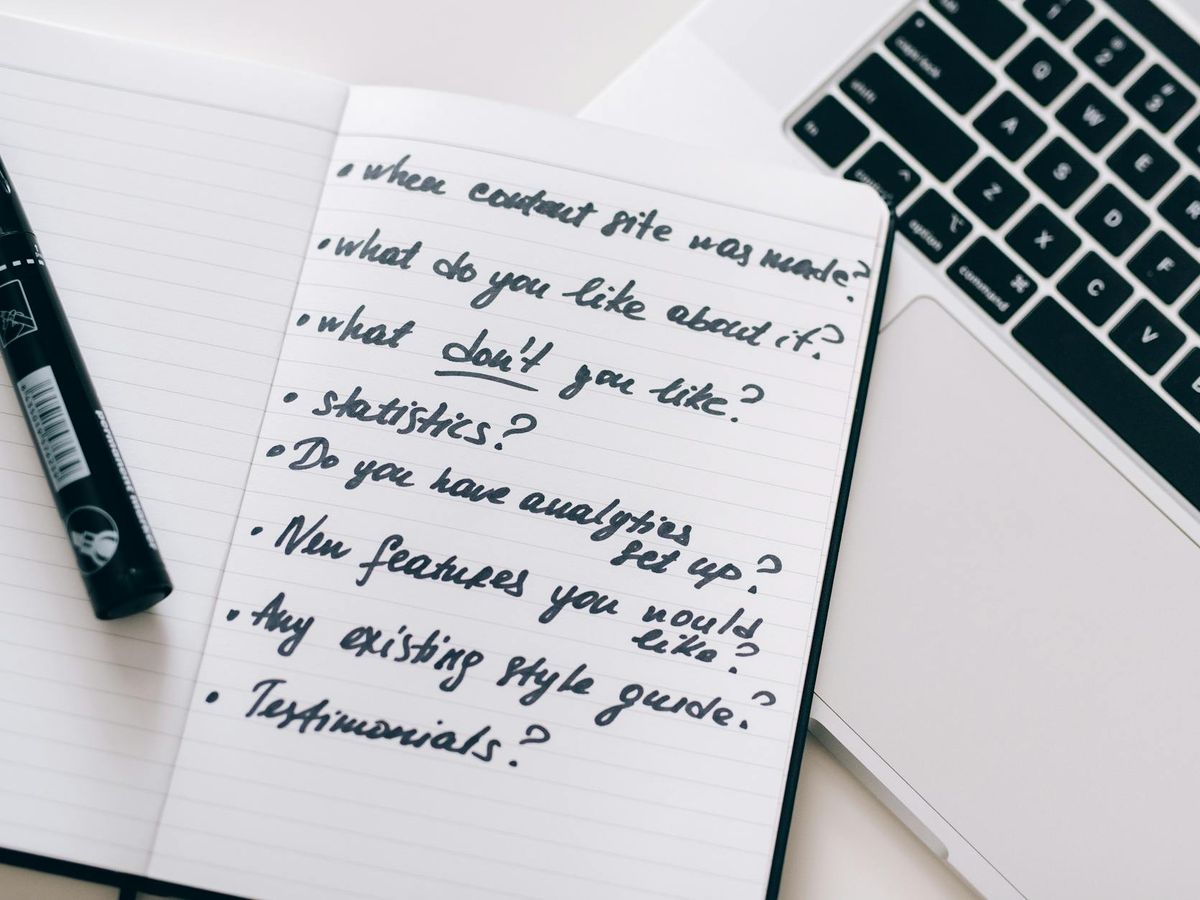 • when content site was made?
• what do you like about it?
• what don't you like?
• statistics?
• Do you have analytics
set up?
• New features you would
like?
• Any existing style guide?
• Testimonials?
permanent
caps lock
shift
fn
control
option
command
1
2
3
Q
W
E
A
S
D
F
Z
X
C
V